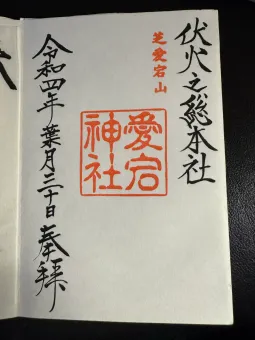 伏火之総本社
芝愛宕山
愛宕
神社
令和四年葉月三十日奉拝